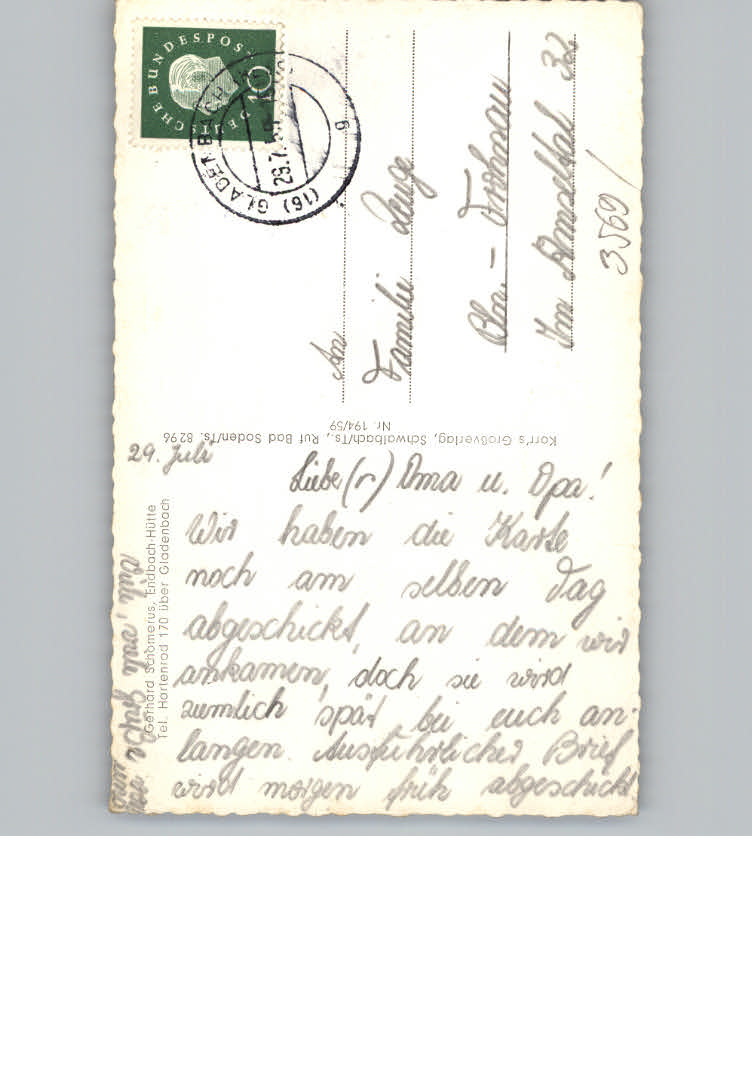 DEUTSCHE BUNDESPOST
10
(16) GLADENBACH
29.7.59
g
An
Familie
Bln. - Frohnau
Im Amseltal 32
3569/
Korr's Großverlag, Schwalbach/Ts., Ruf Bad Soden/Ts. 8296
Nr. 194/59
Gerhard Schömerus, Endbach-Hütte
Tel. Hartenrod 170 über Gladenbach
29. Juli
Liebe(r) Oma u. Opa!
Wir haben die Karte
noch am selben Tag
abgeschickt, an dem wir
ankamen, doch sie wird
ziemlich spät bei euch an-
langen. Ausführlicher Brief
wird morgen früh abgeschickt